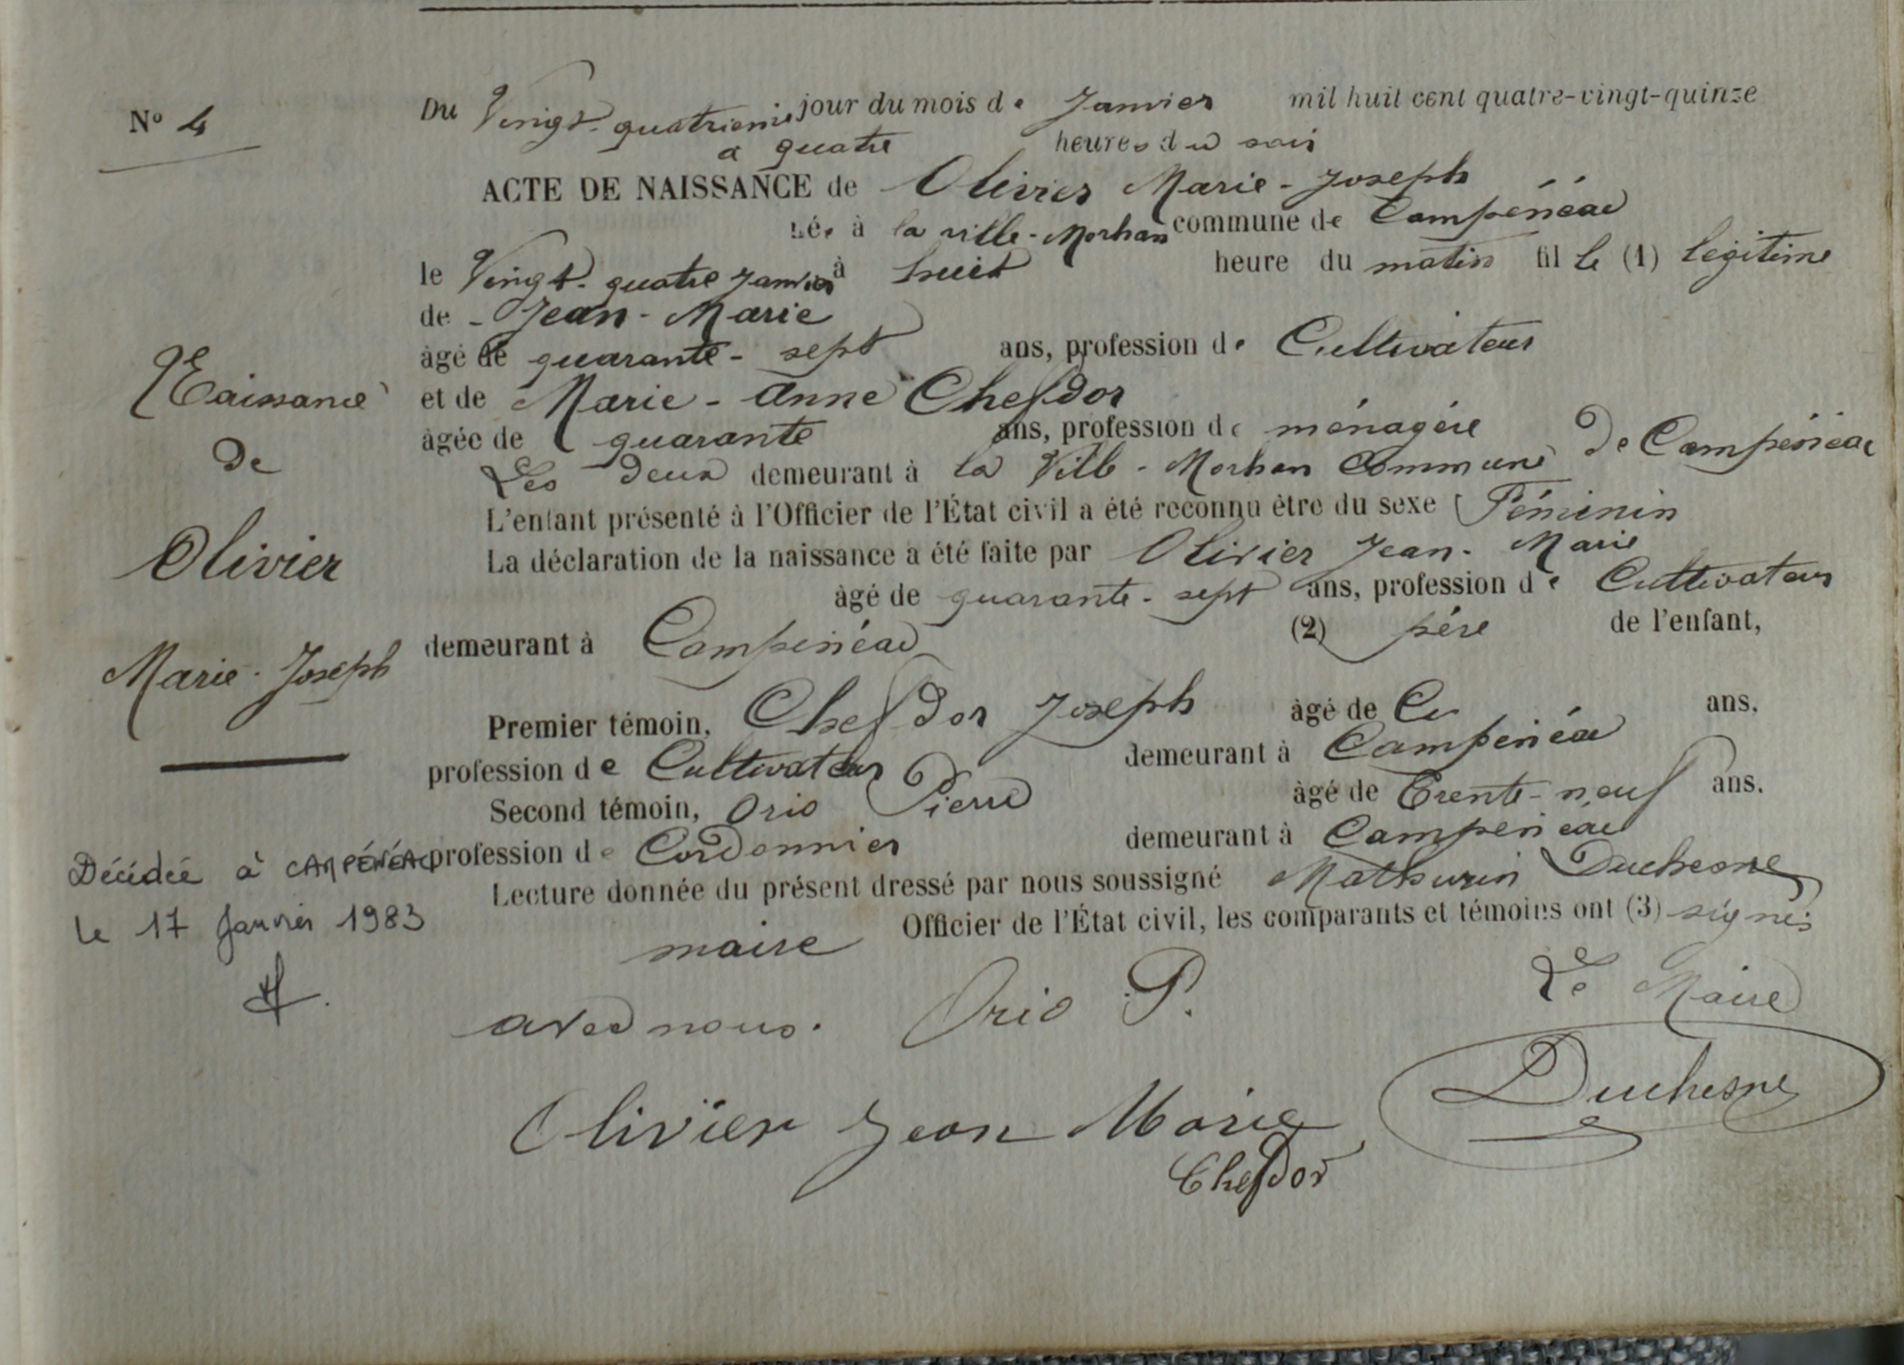 N° 4
Du Vingt-quatrième jour du mois de Janvier mil huit cent quatre-vingt-quinze
a quatre heures du soir
ACTE DE NAISSANCE de Olivier Marie-Joseph
née à la ville-Morhan commune de Campénéac
le Vingt-quatre janvier à huit heure du matin fille (1) légitime
de - Jean-Marie
âgé de quarante-sept ans, profession de Cultivateur
et de Marie-Anne Chefdor
âgée de quarante ans, profession de ménagère
Les deux demeurant à la Ville-Morhan Commune de Campénéac
L'enfant présenté à l'Officier de l'État civil a été reconnu être du sexe Féminin
La déclaration de la naissance a été faite par Olivier Jean-Marie
âgé de quarante-sept ans, profession de Cultivateur
demeurant à Campénéac (2) père de l'enfant,
Premier témoin, Chefdor Joseph âgé de ans.
profession de Cultivateur demeurant à Campénéac
Second témoin, Orio Pierre âgé de Trente-neuf ans.
profession de Cordonnier demeurant à Campénéac
Lecture donnée du présent dressé par nous soussigné Mathurin Duchesne
maire Officier de l'État civil, les comparants et témoins ont (3) signés
avec nous. Orio P. Le Maire
Duchesne
Olivier Jean Marie
Chefdor
Naissance
de
Olivier
Marie-Joseph
Décédée à CAMPÉNÉAC
le 17 Janvier 1983